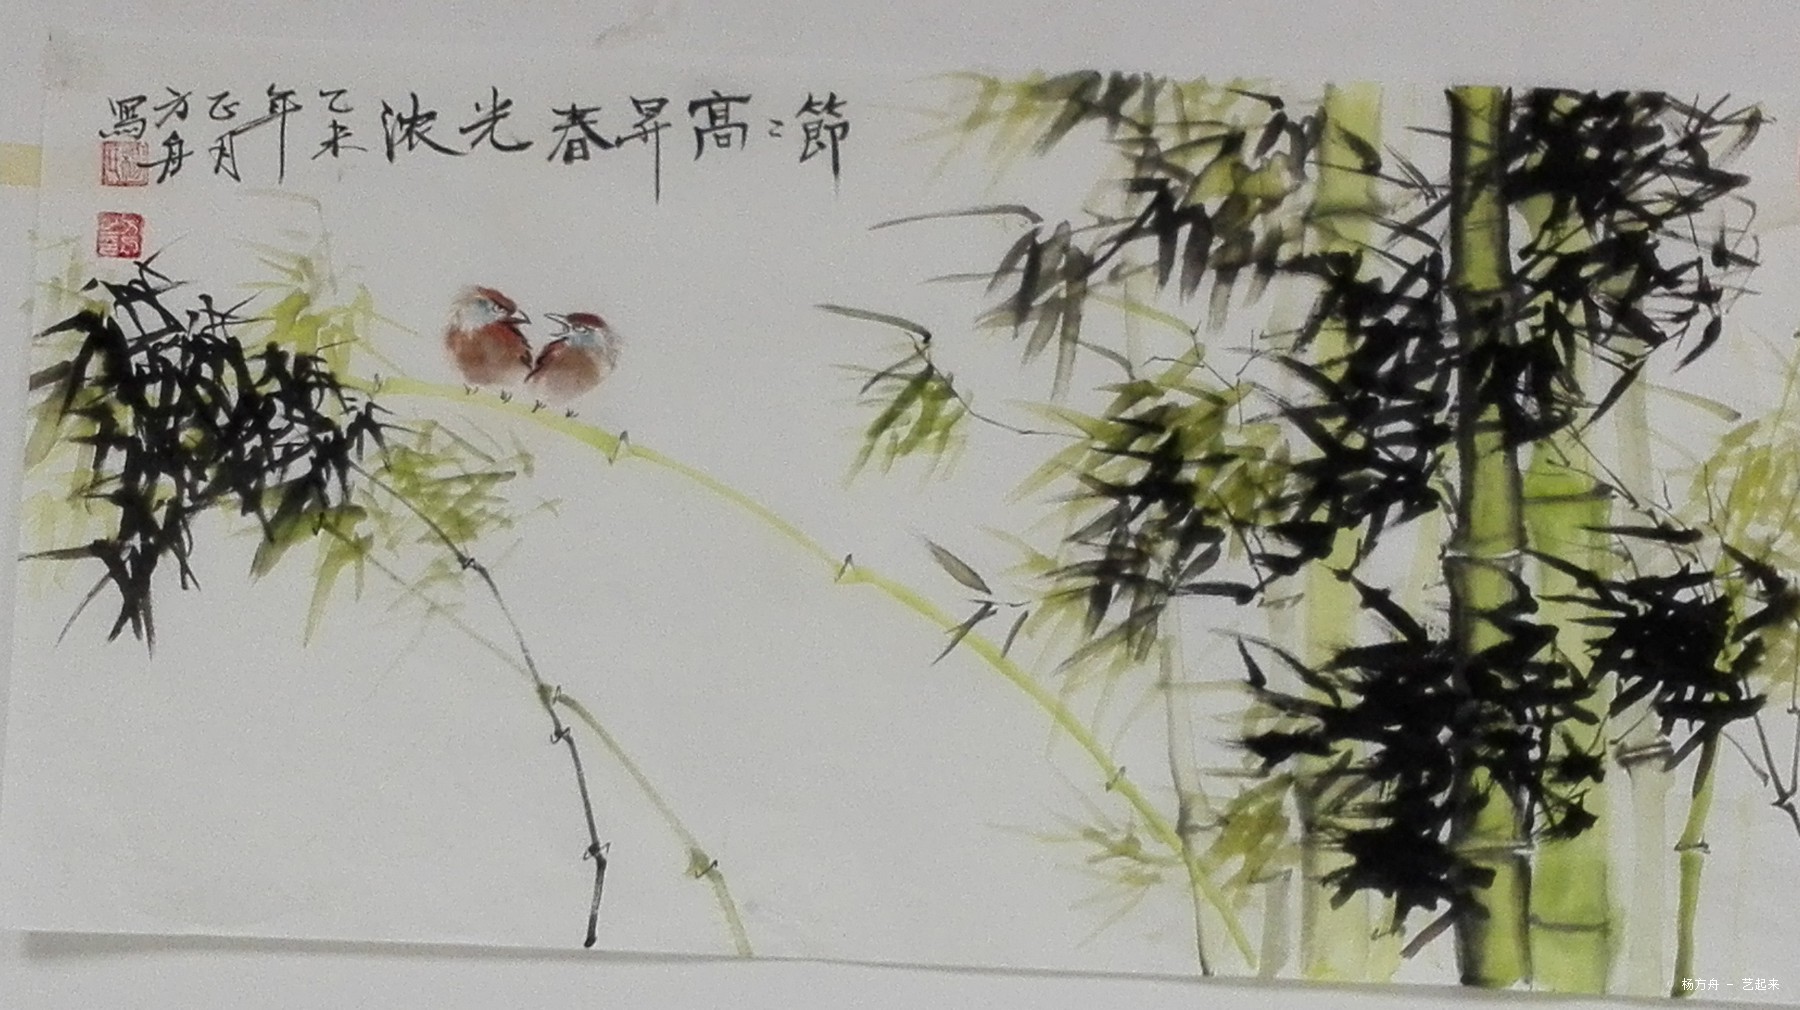 節〻高昇春光浓
乙未
年
正月
方舟
寫
杨方舟 - 艺起来